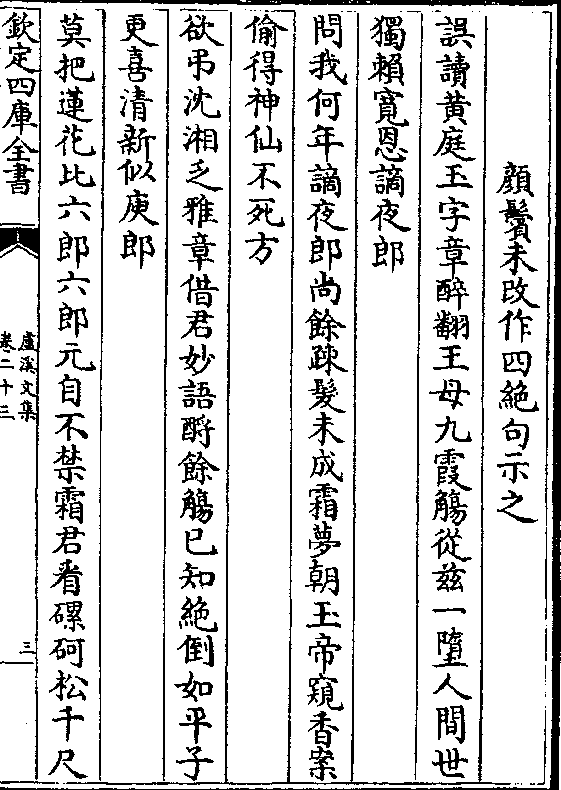 顔鬢未改作四絶句示之
誤讀黄庭玉字章醉翻王母九霞觴從兹一墮人間世
獨賴寛恩謫夜郎
問我何年謫夜郎尚餘疎髪未成霜夢朝玉帝窺香案
偷得神仙不死方
欲弔沈湘乏雅章借君妙語酹餘觴已知絶倒如平子
更喜清新似庾郎
莫把蓮花比六郎六郎元自不禁霜君看磥砢松千尺
欽定四庫全書
盧溪文集
卷二十三
三